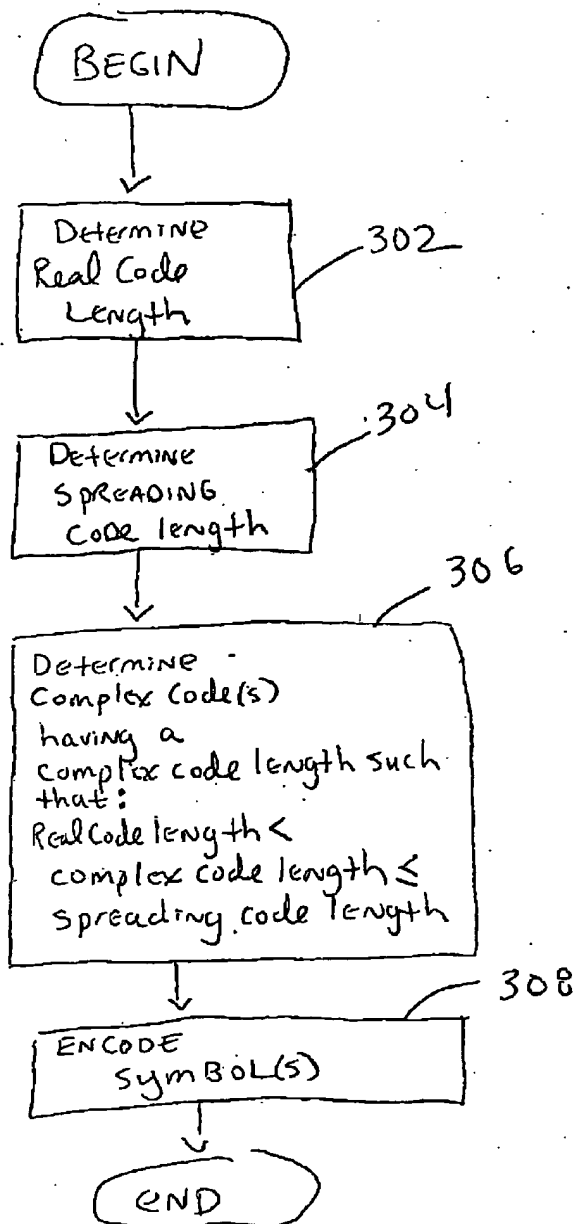 BEGIN
Determine
Real Code
Length
302
Determine
SPREADING
Code length
304
306
Determine
Complex Code(s)
having a
complex code length such
that:
Real Code length <
complex code length ≤
spreading code length
308
ENCODE
SymBOL(S)
END